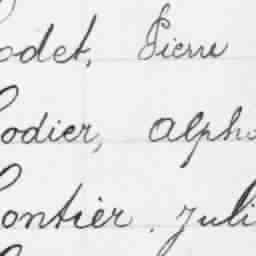 odet, Pierre
odier, Alpho
ontier, Juli